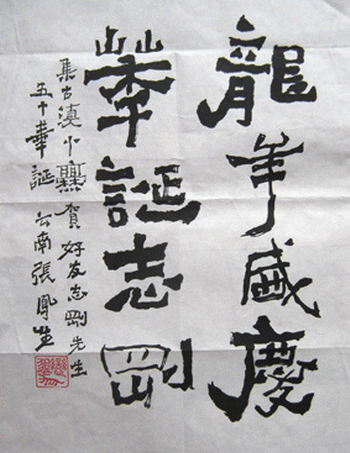 龍年盛慶
華誕志剛
集古滇小爨賀好友志剛先生
五十華誕 云南張鳳生